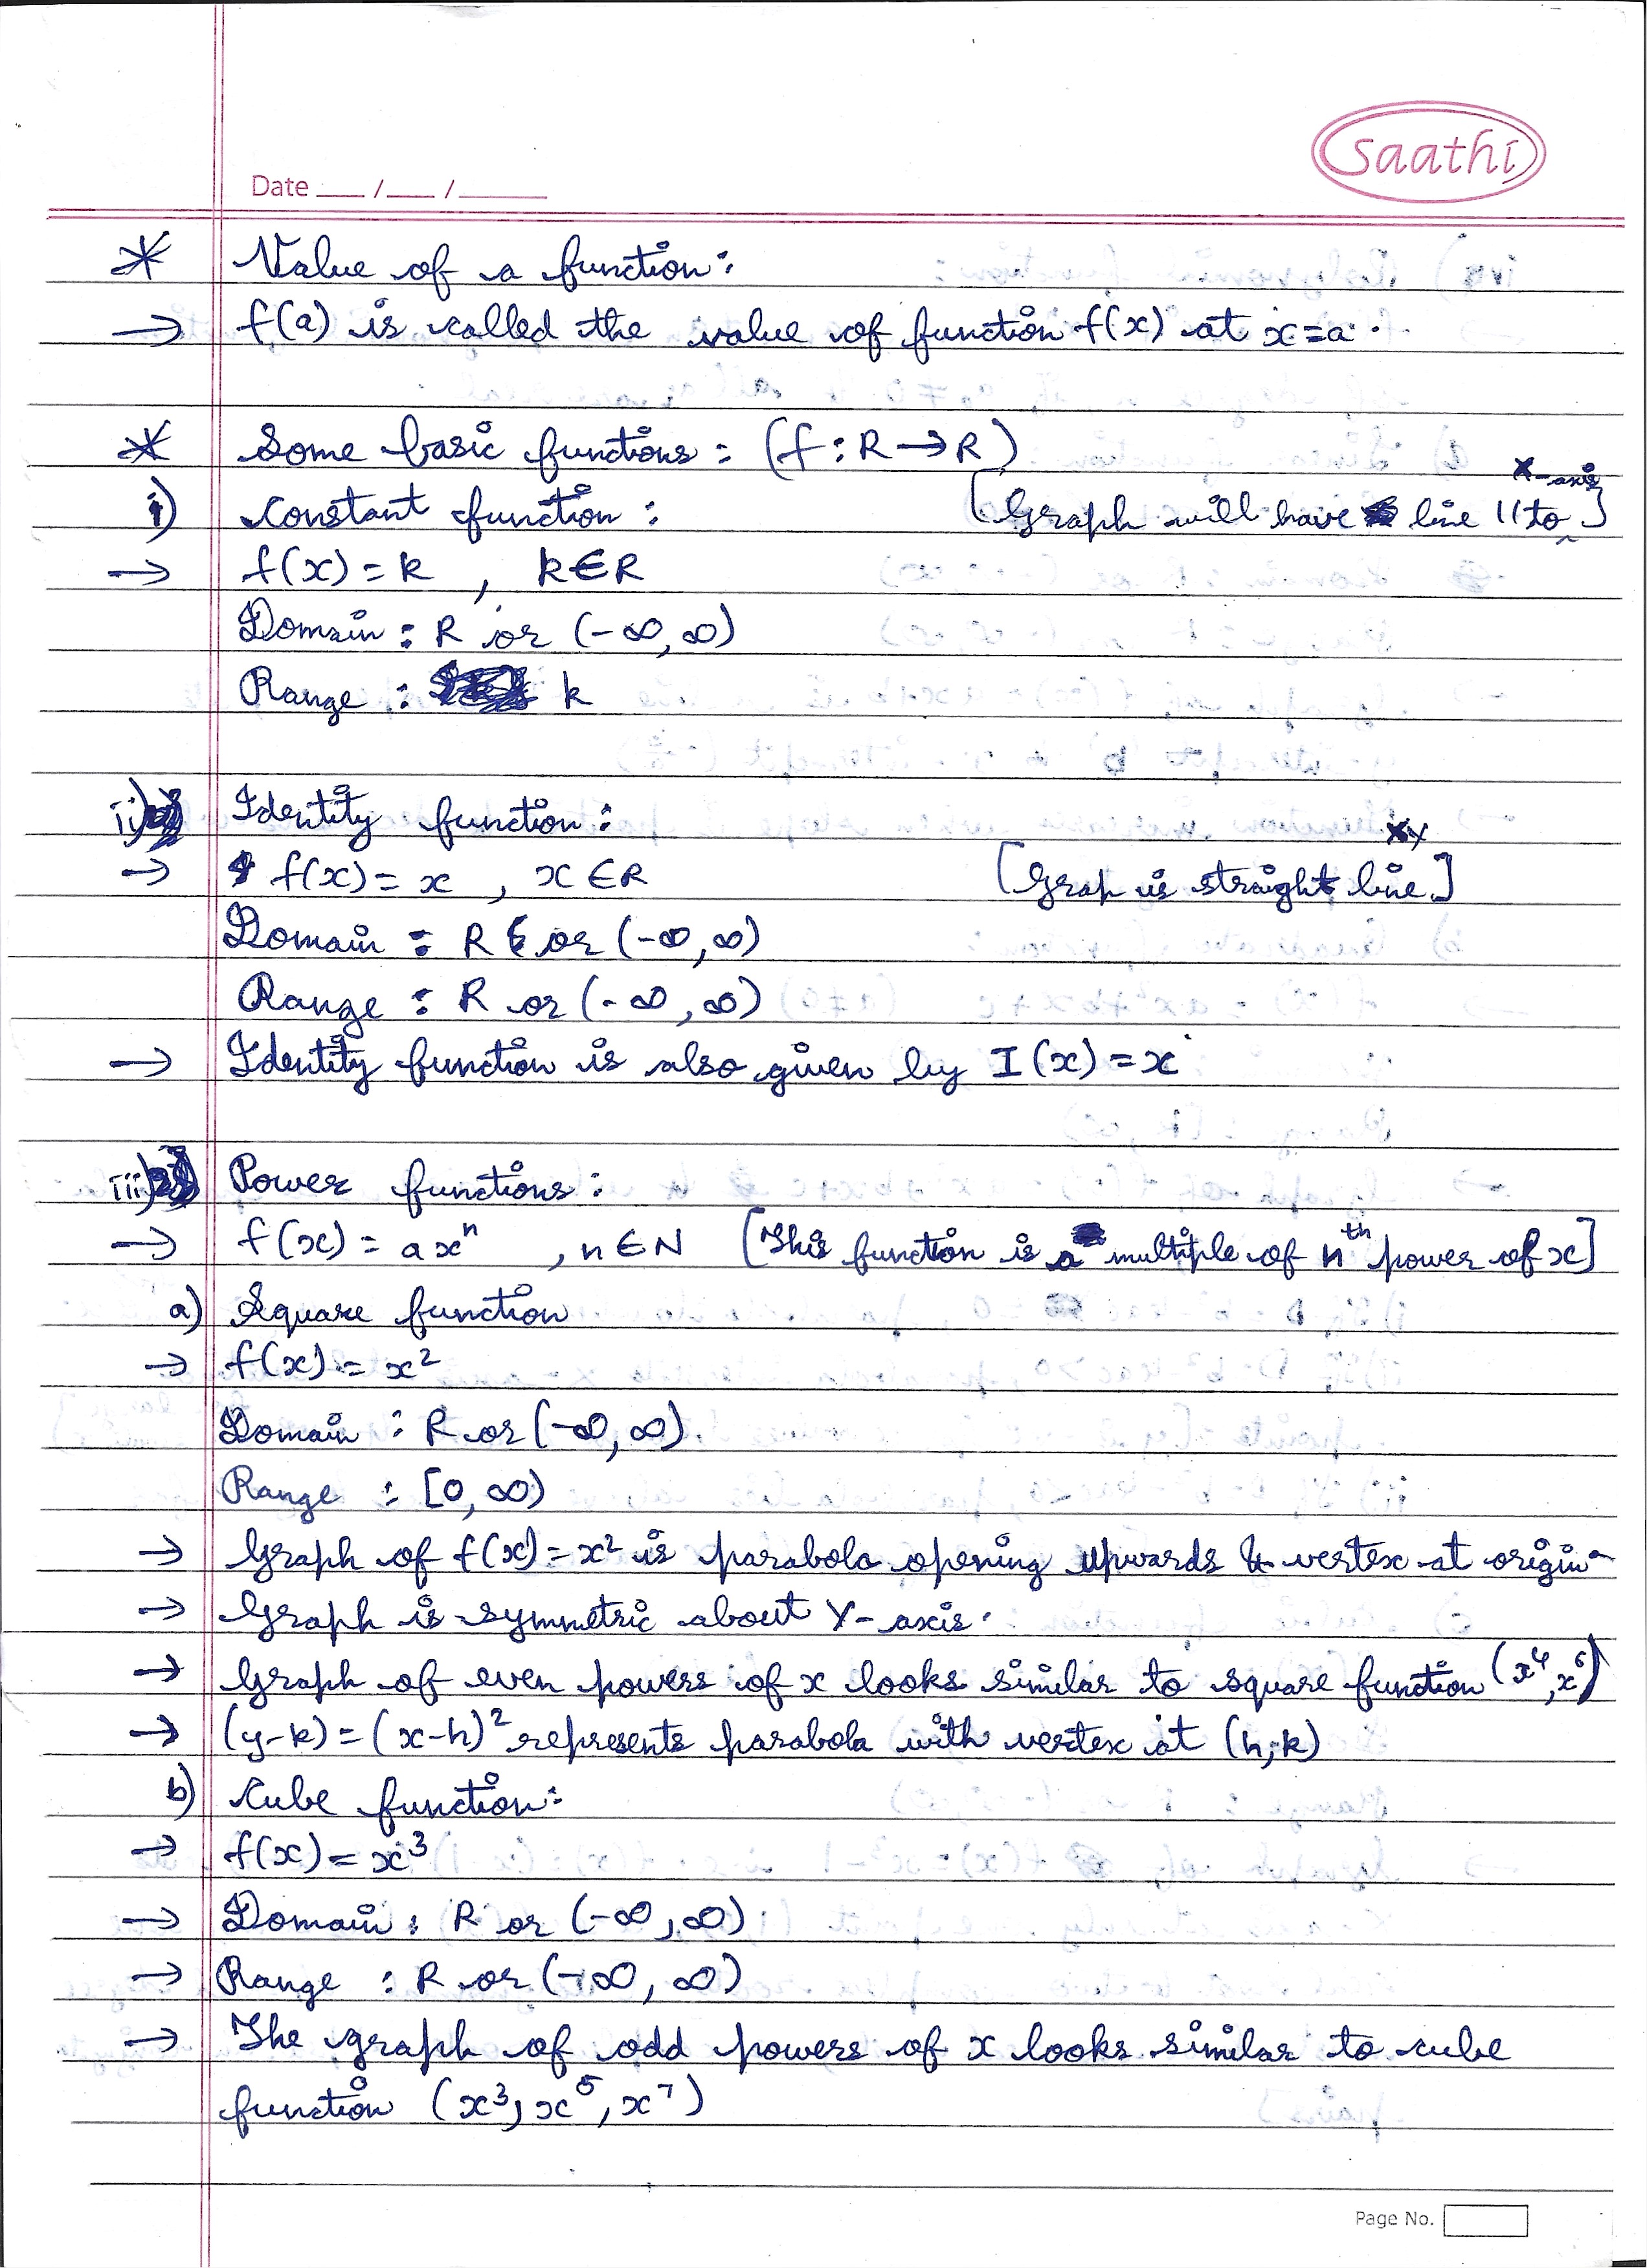 saathi
Date ___ / ___ / ______
* Value of a function:
→ f(a) is called the value of function f(x) at x=a.
* Some basic functions : (f : R → R)
i) Constant function : [Graph will have line || to x-axis]
→ f(x) = k , k ∈ R
Domain : R or (-∞, ∞)
Range : k
ii) Identity function :
→ f(x) = x , x ∈ R [Grap is straight line]
Domain : R or (-∞, ∞)
Range : R or (-∞, ∞)
→ Identity function is also given by I(x) = x
iii) Power functions :
→ f(x) = axⁿ , n ∈ N [This function is a multiple of nth power of x]
a) Square function
→ f(x) = x²
Domain : R or (-∞, ∞)
Range : [0, ∞)
→ Graph of f(x) = x² is parabola opening upwards & vertex at origin
→ Graph is symmetric about Y-axis.
→ Graph of even powers of x looks similar to square function (x⁴, x⁶)
→ (y-k) = (x-h)² represents parabola with vertex at (h, k)
b) Cube function:
→ f(x) = x³
→ Domain : R or (-∞, ∞)
→ Range : R or (-∞, ∞)
→ The graph of odd powers of x looks similar to cube
function (x³, x⁵, x⁷)
Page No.